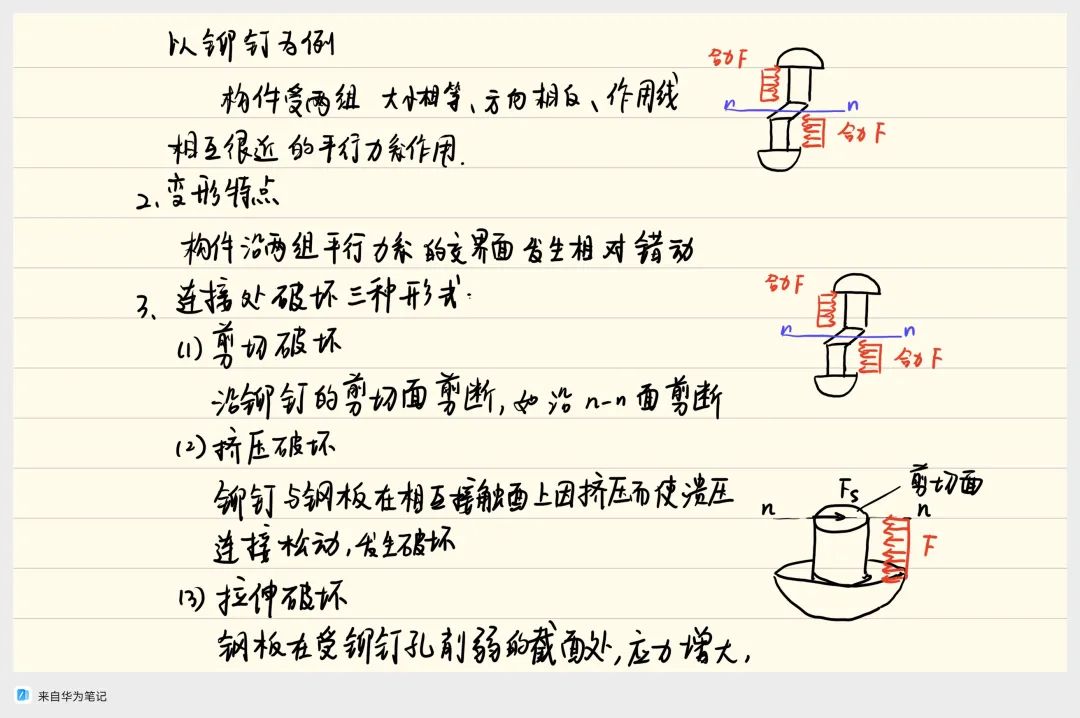 以铆钉为例
构件受两组 大小相等、方向相反、作用线
相互很近的平行力系作用.
合力F
n n
合力F
2、变形特点
构件沿两组平行力系的交界面发生相对错动
3、连接处破坏三种形式:
(1)剪切破坏
沿铆钉的剪切面剪断,如沿n-n面剪断
合力F
n n
合力F
(2)挤压破坏
铆钉与钢板在相互接触面上因挤压而使溃压
连接松动,发生破坏
Fs
剪切面
n n
F
(3)拉伸破坏
钢板在受铆钉孔削弱的截面处,应力增大,
来自华为笔记